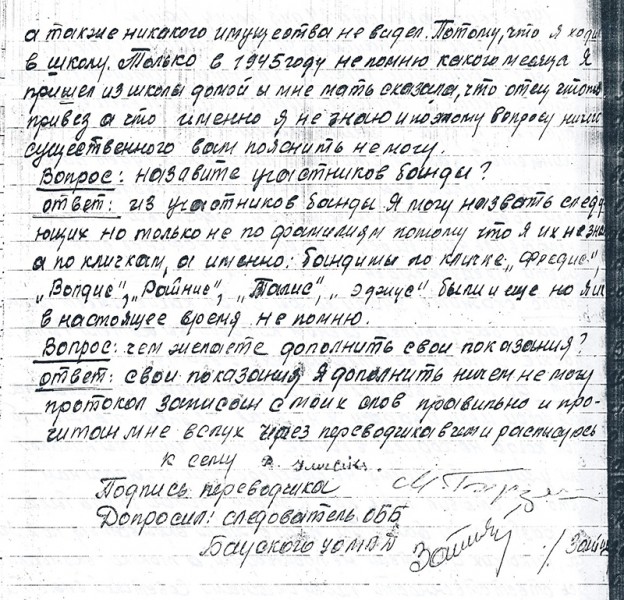 а также никакого имущества не видел. Потому, что я ходи
в школу. Только в 1945 году не помню какого месяца я
пришел из школы домой ы мне мать сказала, что отец что то
привез а что именно я не знаю и поэтому вопросу ничег
существенного вам пояснить не могу.
Вопрос: назавите участников банды?
ответ: из участников банды я могу назвать следу
ющих но только не по фамилиям потому что я их не зна
а по кличкам, а именно: бандиты по кличке „Фредис",
„Волдис", „Райнис", „Талис", „Эджус" были и еще но я их
в настоящее время не помню.
Вопрос: чем желаете дополнить свои показания?
ответ: свои показания я дополнить ничем не могу
протокол записан с моих слов правильно и про-
читан мне вслух через переводчика в чем и расписуюсь
к сему
Подпись переводчика
Допросил: следователь ОББ
Бауского УОМВД